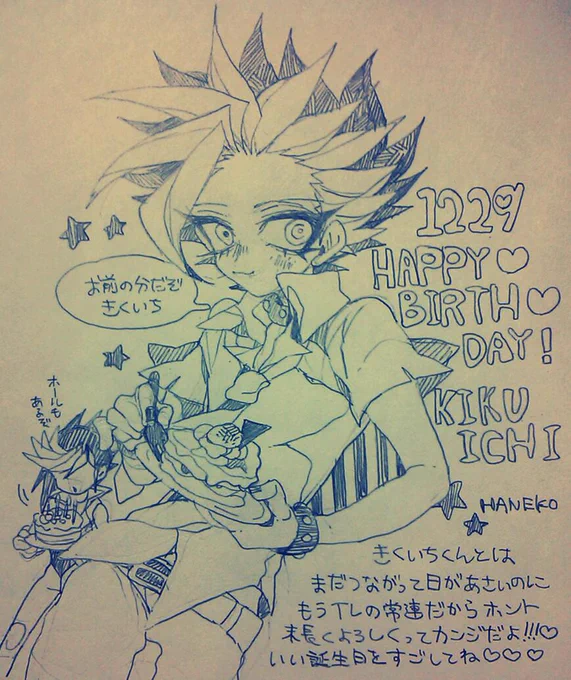 1229
HAPPY♡
BIRTH♡
DAY!
KIKU
ICHI
お前の分だぞ
きくいち
ホールも
あるぞ
HANEKO
きくいちくんとは
まだつながって日があさいのに
もうTLの常連だからホント
末長くよろしくってカンジだよ!!!♡
いい誕生日をすごしてね♡♡♡